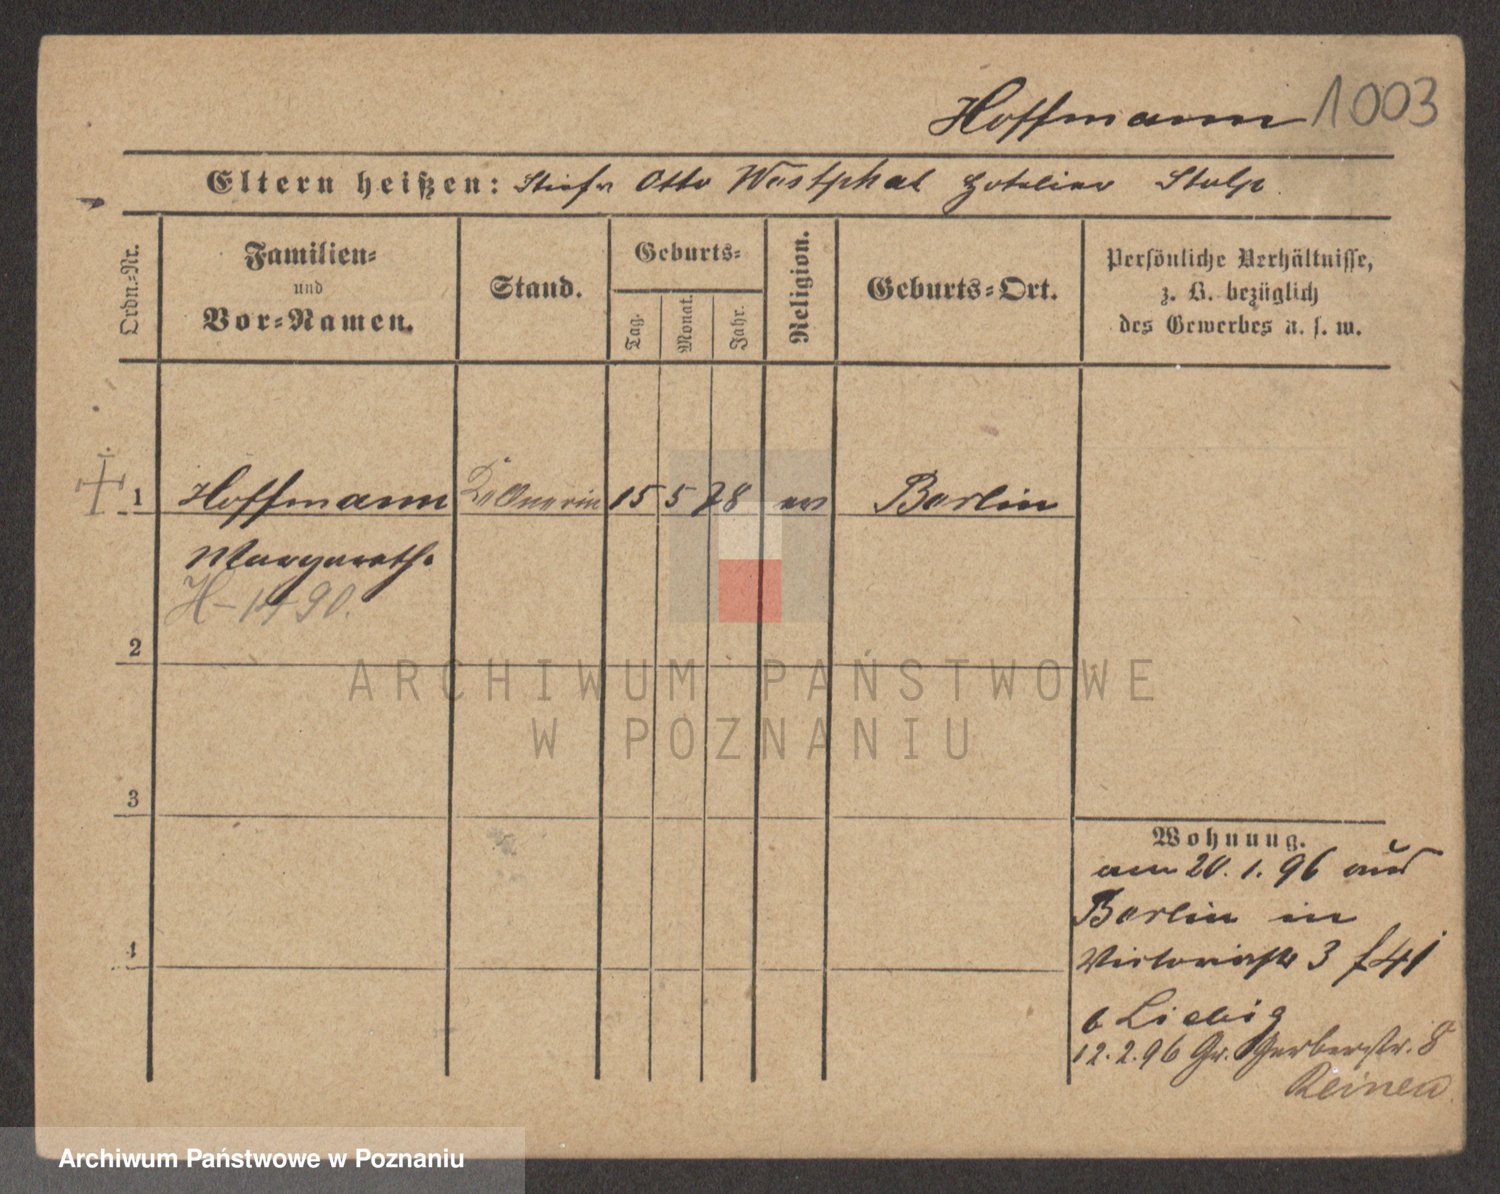 Hoffmann 1003
Eltern heißen: Stiefv Otto Westphal Hotelier Stolp.
Ordn.-Nr.
Familien-
und
Vor-Namen.
Stand.
Geburts-
Tag.
Monat.
Jahr.
Religion.
Geburts-Ort.
Persönliche Verhältnisse,
z. B. bezüglich
des Gewerbes u. s. w.
1 Hoffmann Kellnerin 15 5 78 ev Berlin
Margareth.
H-1490.
2
3
4
Wohnung.
am 20. 1. 96 aus
Berlin in
Victoriastr 3
b Liebig
12.2.96 Gr. Gerberstr. 8
ARCHIWUM PAŃSTWOWE
W POZNANIU
Archiwum Państwowe w Poznaniu